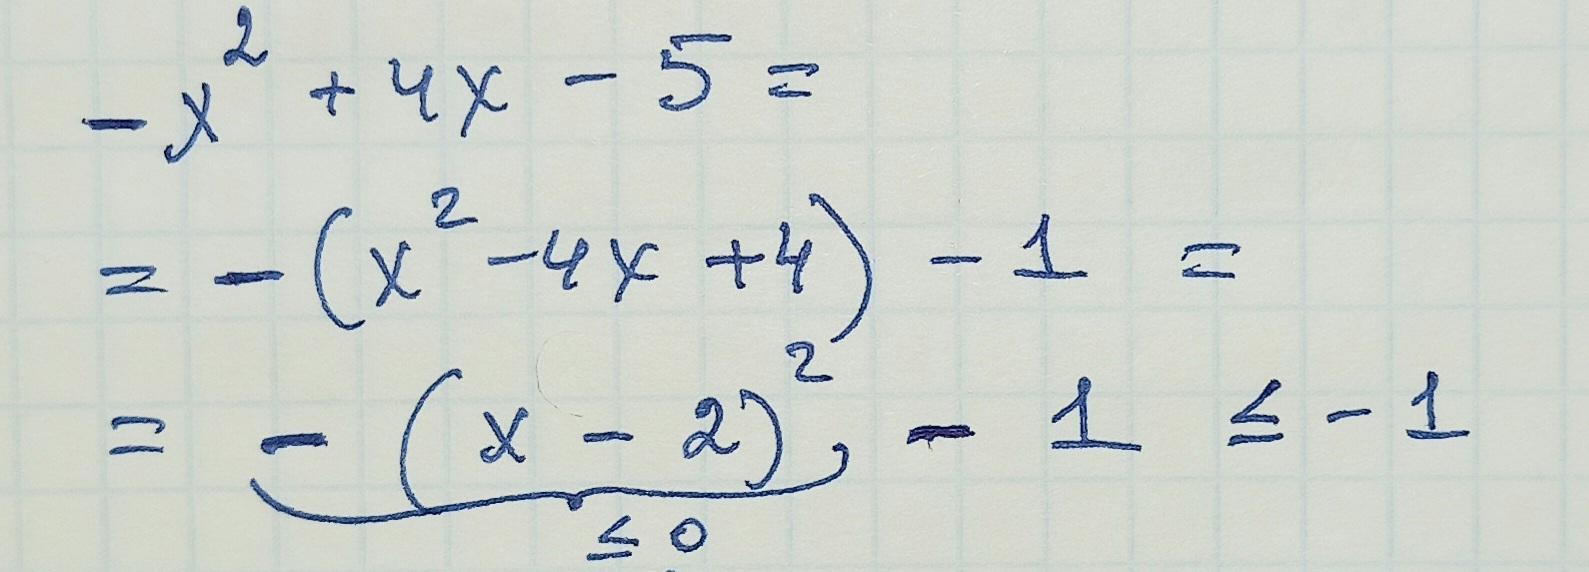 -x² + 4x - 5 =
= -(x² - 4x + 4) - 1 =
= -(x - 2)² - 1 ≤ -1
≤ 0